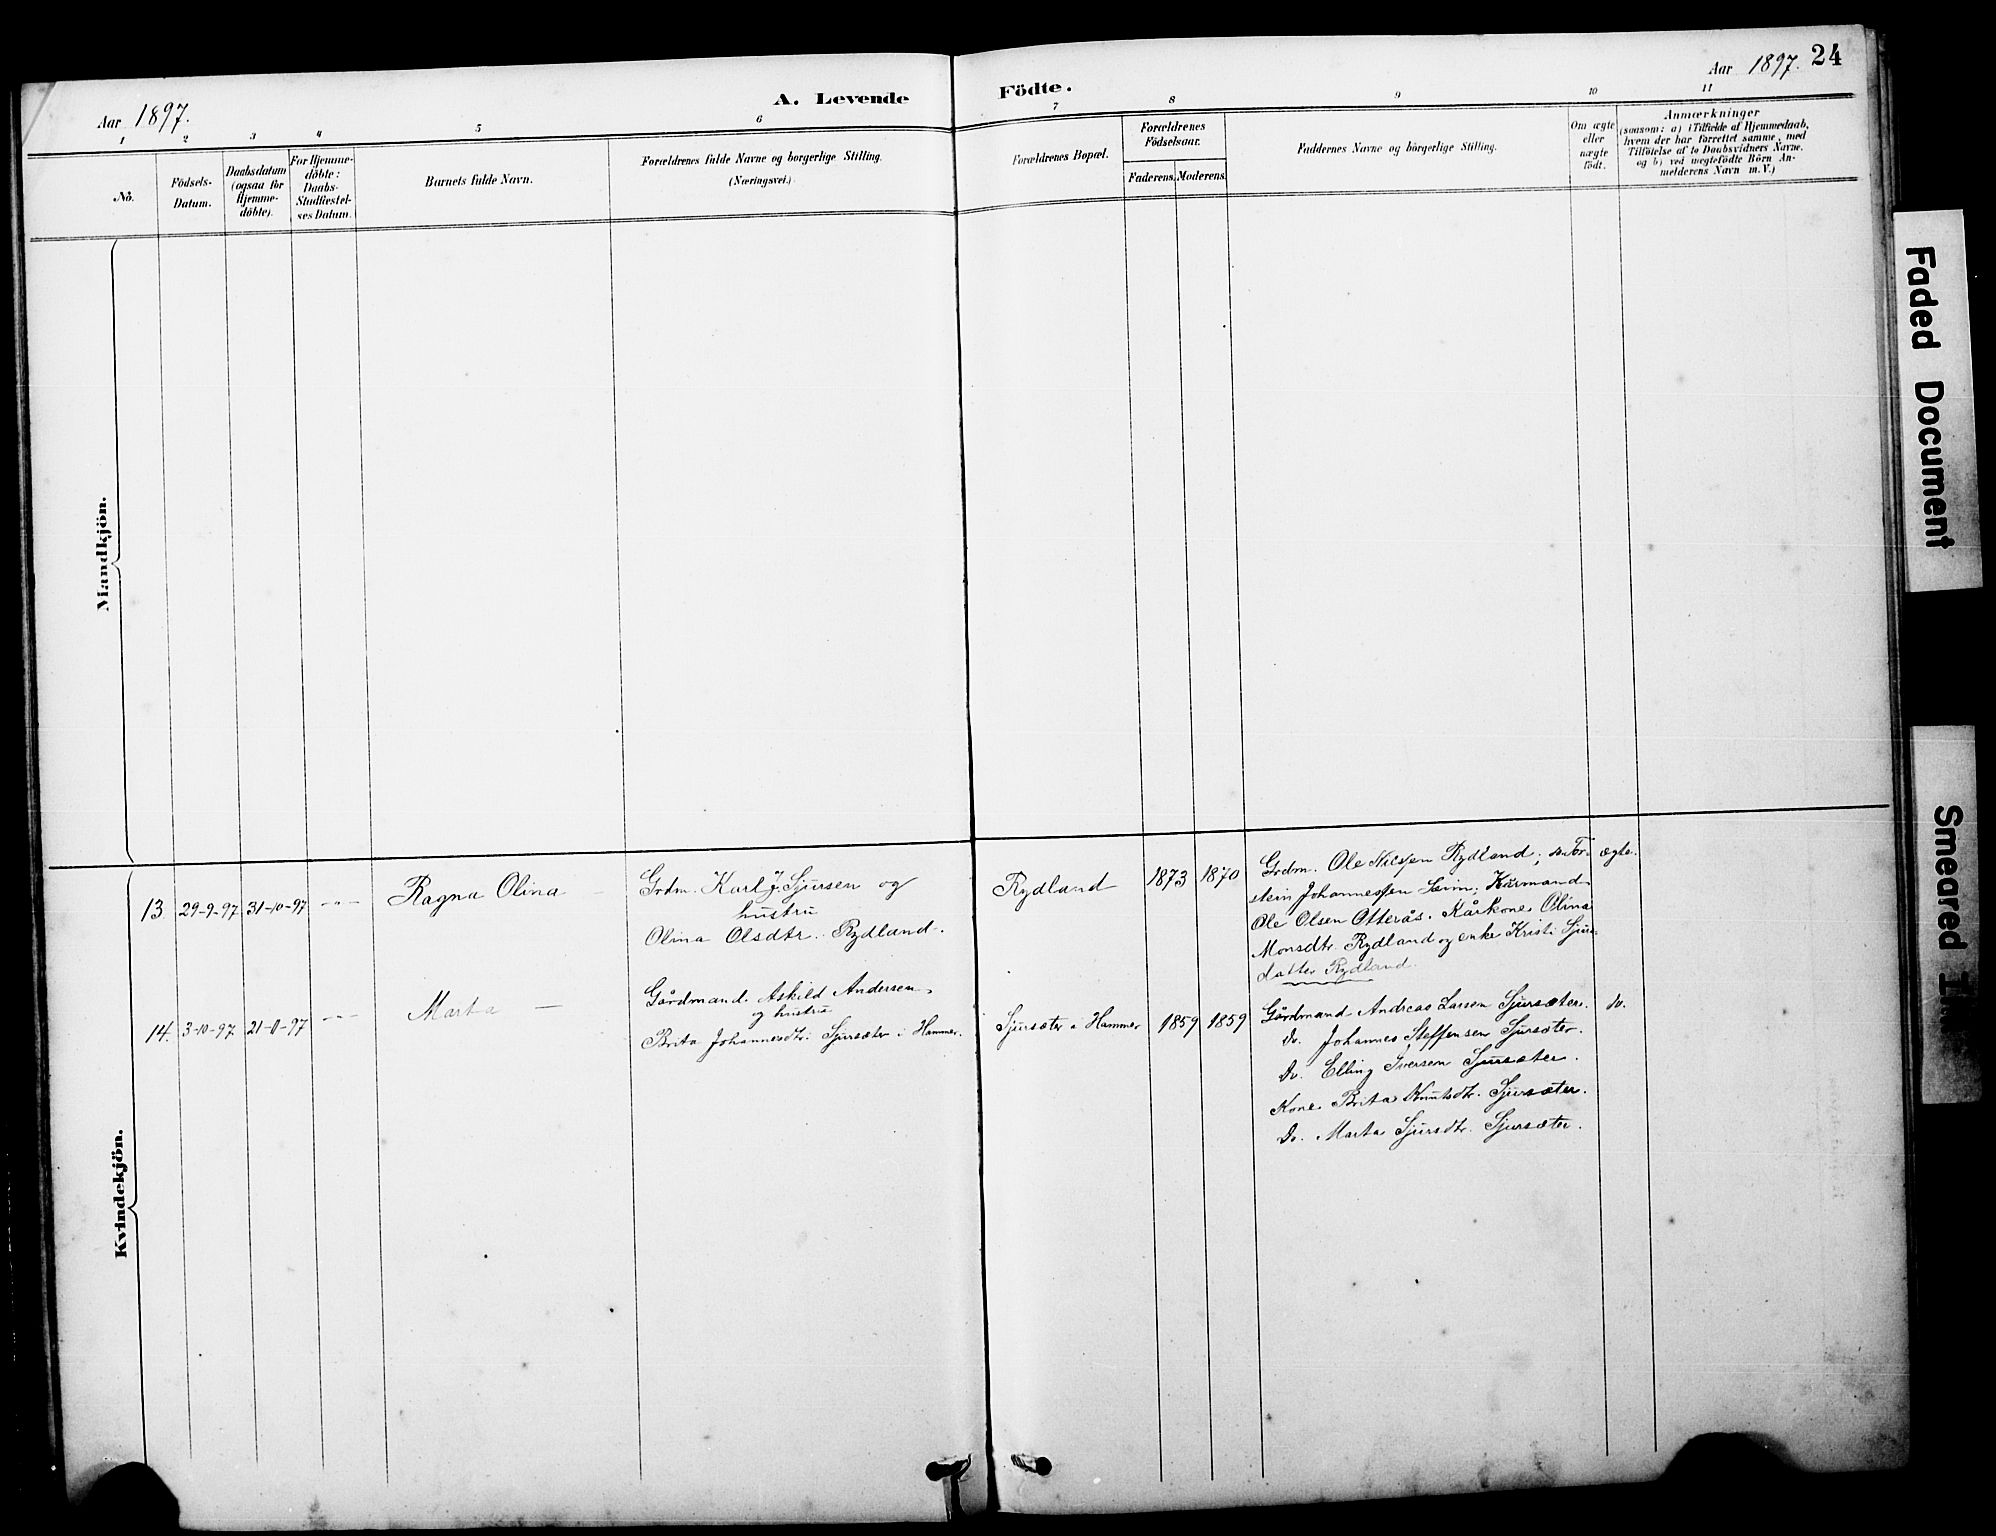 Aar 1897.
A. Levende
1 2 3 4 5 6
No.
Födsels-
Datum.
Daabsdatum
(ogsaa for
Hjemme-
döbte).
For Hjemme-
döbte:
Daabs-
Stadfæstel-
ses Datum.
Barnets fulde Navn.
Forældrenes fulde Navne og borgerlige Stilling.
(Næringsvei.)
Mandkjön.
Kvindekjön.
13. 29-9-97 31-10-97 -"- Ragna Olina
Grdm. Karl J. Sjursen og
hustru
Olina Olsdtr. Rydland.
14. 3-10-97 21-11-97 -"- Marta
Gårdmand Askild Andersen
og hustru
Brita Johannesdtr. Sjursæter i Hammer.
Födte.
Aar 1897. 24
7 8 9 10 11
Forældrenes Bopæl.
Forældrenes
Födselsaar.
Faderens. Moderens.
Faddernes Navne og borgerlige Stilling.
Om ægte
eller
uægte
födt.
Anmærkninger
(saasom: a) i Tilfælde af Hjemmedaab,
hvem der har forrettet samme, med
Tilföielse af to Daabsvidners Navne.
og b) ved uegtefödte Börn An-
melderens Navn m.V.)
Rydland 1873 1870
Grdm. Ole Nilssen Rydland; Tor- ægte.
stein Johannessen Seim; Kårmand
Ole Olsen Otterås. Kårkone Olina
Monsdtr. Rydland og enke Kristi Sjurs-
datter Rydland
Sjursæter i Hammer 1859 1859
Gårdmand Andreas Larsen Sjursæter. do.
Do. Johannes Steffensen Sjursæter.
Do. Elling Iversen Sjursæter.
Kone Brita Knutsdtr. Sjursæter.
Do. Marta Sjursdtr. Sjursæter.
Faded Document
Smeared